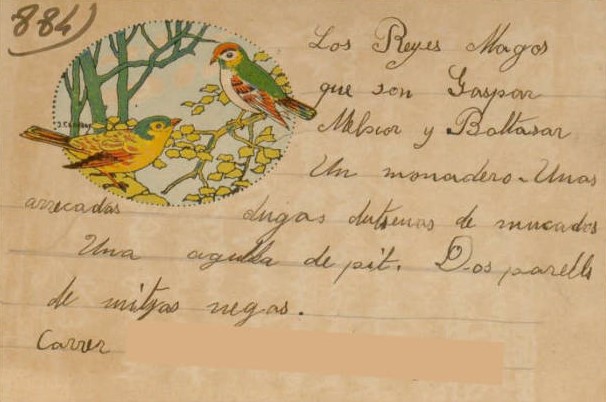 884)
Los Reyes Magos
que son Gaspar
Melsior y Baltasar
Un monadero - Unas
arrecadas dugas dutsenas de mucados
Una agulla de pit. Dos parells
de mitjas negas.
Carrer